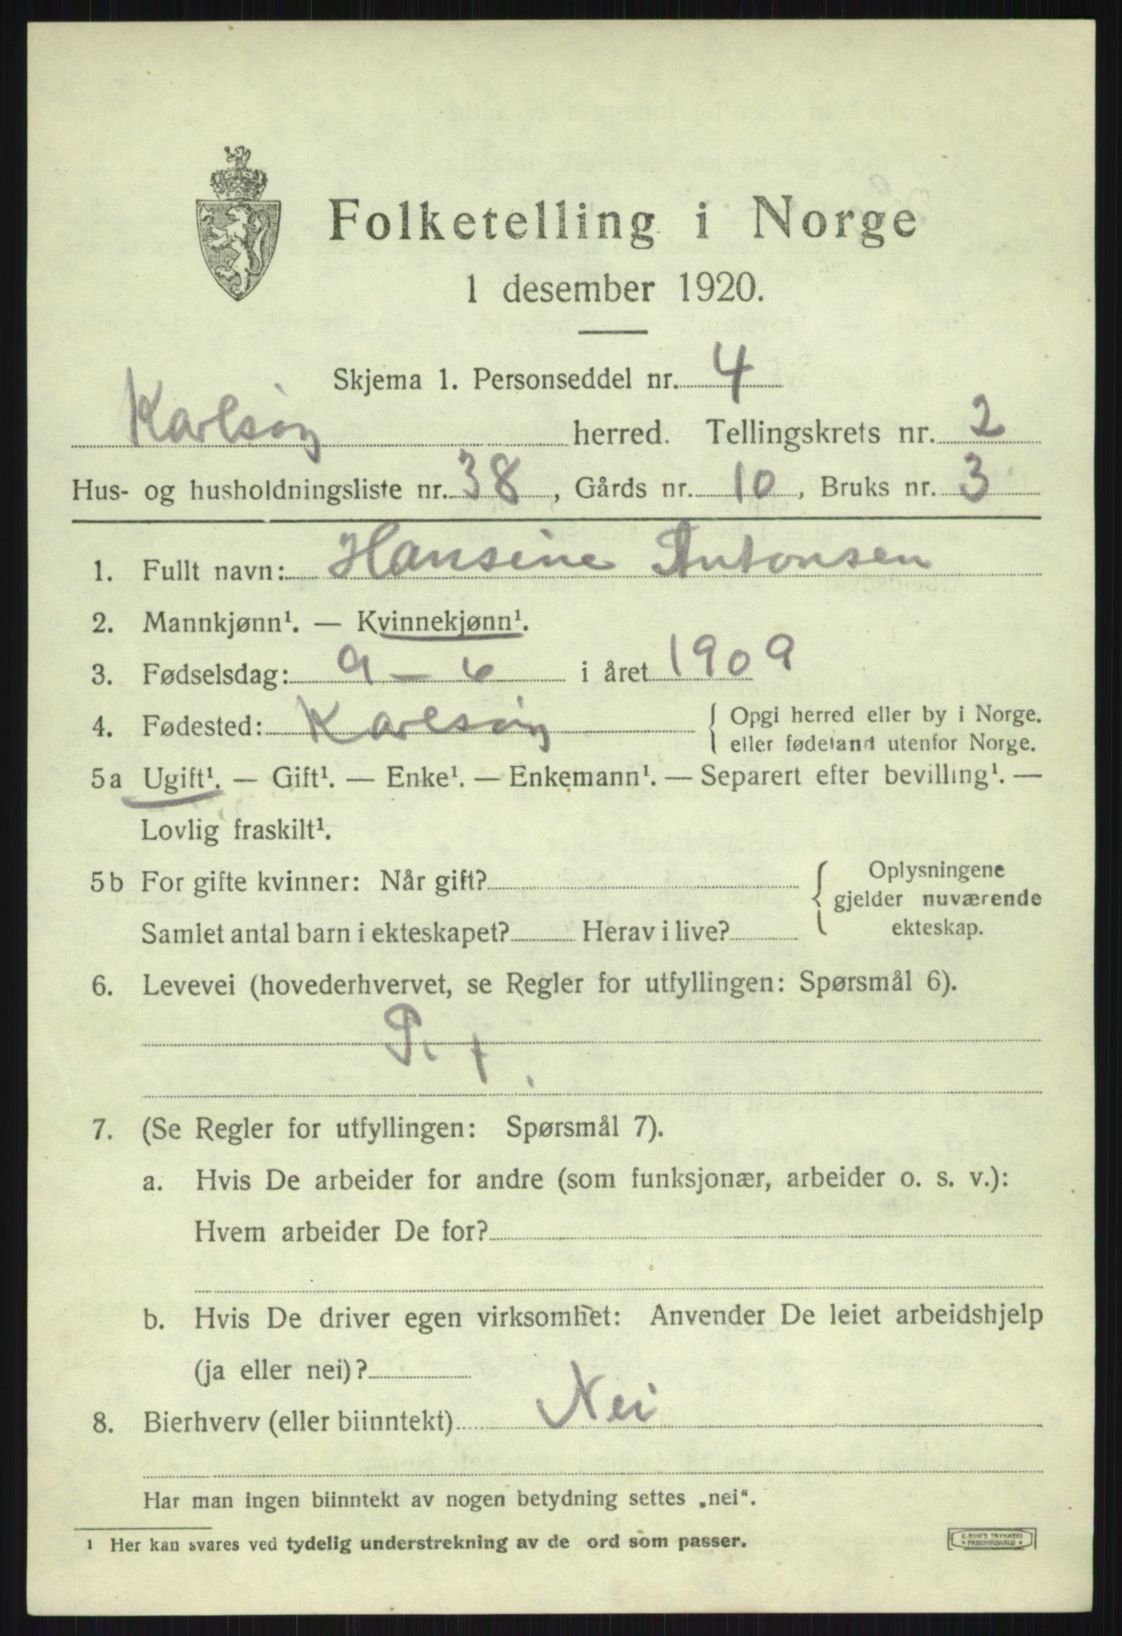 Folketelling i Norge
1 desember 1920.
Skjema 1. Personseddel nr. 4
Karlsøy herred. Tellingskrets nr. 2
Hus- og husholdningsliste nr. 38, Gårds nr. 10, Bruks nr. 3
1. Fullt navn: Hansine Antonsen
2. Mannkjønn¹. — Kvinnekjønn¹.
3. Fødselsdag: 9 – 6 i året 1909
4. Fødested: Karlsøy { Opgi herred eller by i Norge.
eller fødeland utenfor Norge.
5a Ugift¹. — Gift¹. — Enke¹. — Enkemann¹. — Separert efter bevilling¹. —
Lovlig fraskilt¹.
5b For gifte kvinner: Når gift? { Oplysningene
gjelder nuværende
Samlet antal barn i ekteskapet? Herav i live? ekteskap.
6. Levevei (hovederhvervet, se Regler for utfyllingen: Spørsmål 6).
7. (Se Regler for utfyllingen: Spørsmål 7).
a. Hvis De arbeider for andre (som funksjonær, arbeider o. s. v.):
Hvem arbeider De for?
b. Hvis De driver egen virksomhet: Anvender De leiet arbeidshjelp
(ja eller nei)?
8. Bierhverv (eller biinntekt) Nei
Har man ingen biinntekt av nogen betydning settes „nei“.
¹ Her kan svares ved tydelig understrekning av de ord som passer.